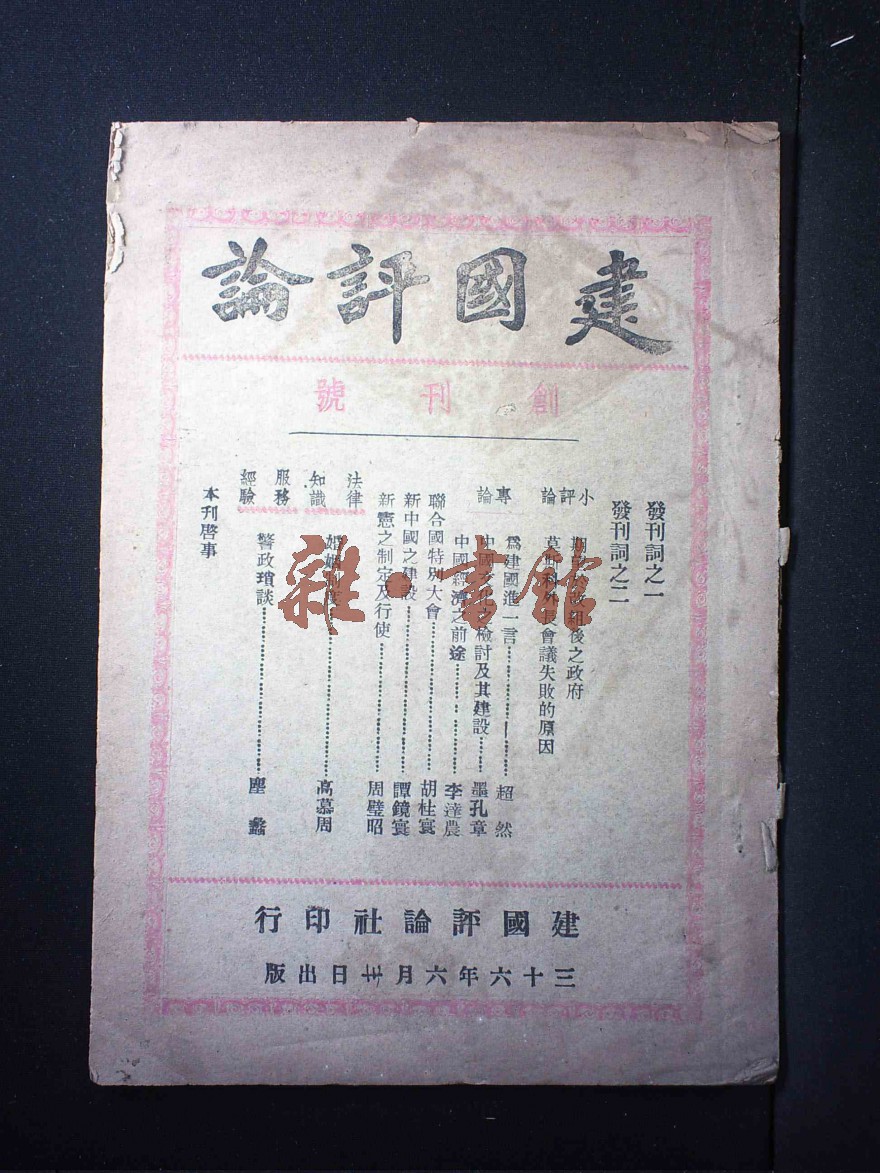 建國評論
創刊號
發刊詞之一
發刊詞之二
小評論
期 改組後之政府
莫斯科外長會議失敗的原因
專論
爲建國進一言 超然
中國文化之檢討及其建設 墨孔章
中國經濟之前途 李達農
聯合國特別大會 胡杜寰
新中國之建設 譚鏡寰
新憲之制定及行使 周璧昭
法律知識
婚姻 高慕周
服務經驗
警政瑣談 塵蠡
本刊啓事
建國評論社印行
三十六年六月卅日出版
雜·書館